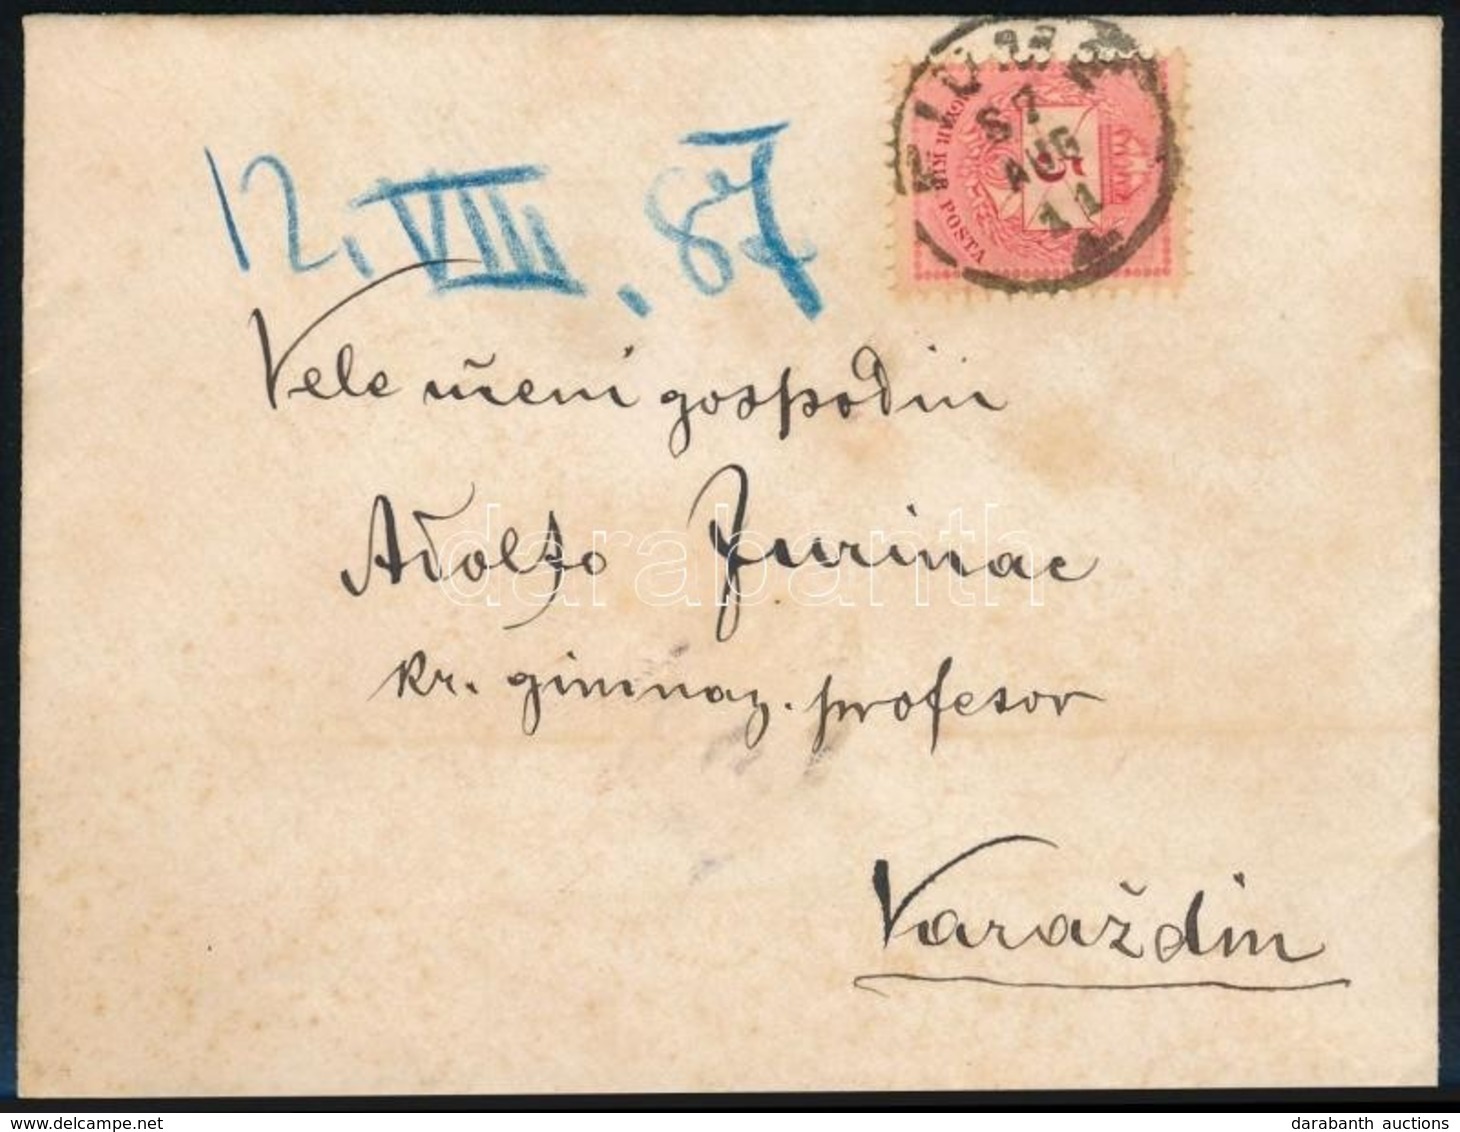 87
AUG
11
MAGYAR KIR. POSTA
5
12. VIII. 87
Veleučeni gospodin
Adolfo Jurinac
kr. gimnaz. profesor
Varaždin
darabanth
darabanth auctions